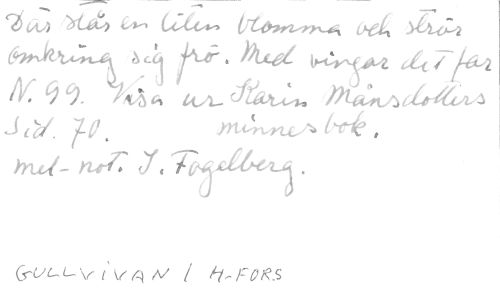 Där står en liten blomma och strör
omkring sig frö. Med vingar det far
N. 99. Visa ur Karin Månsdotters
Sid. 70. minnesbok.
mel-not. I. Fogelberg.
GULLVIVAN / H-FORS